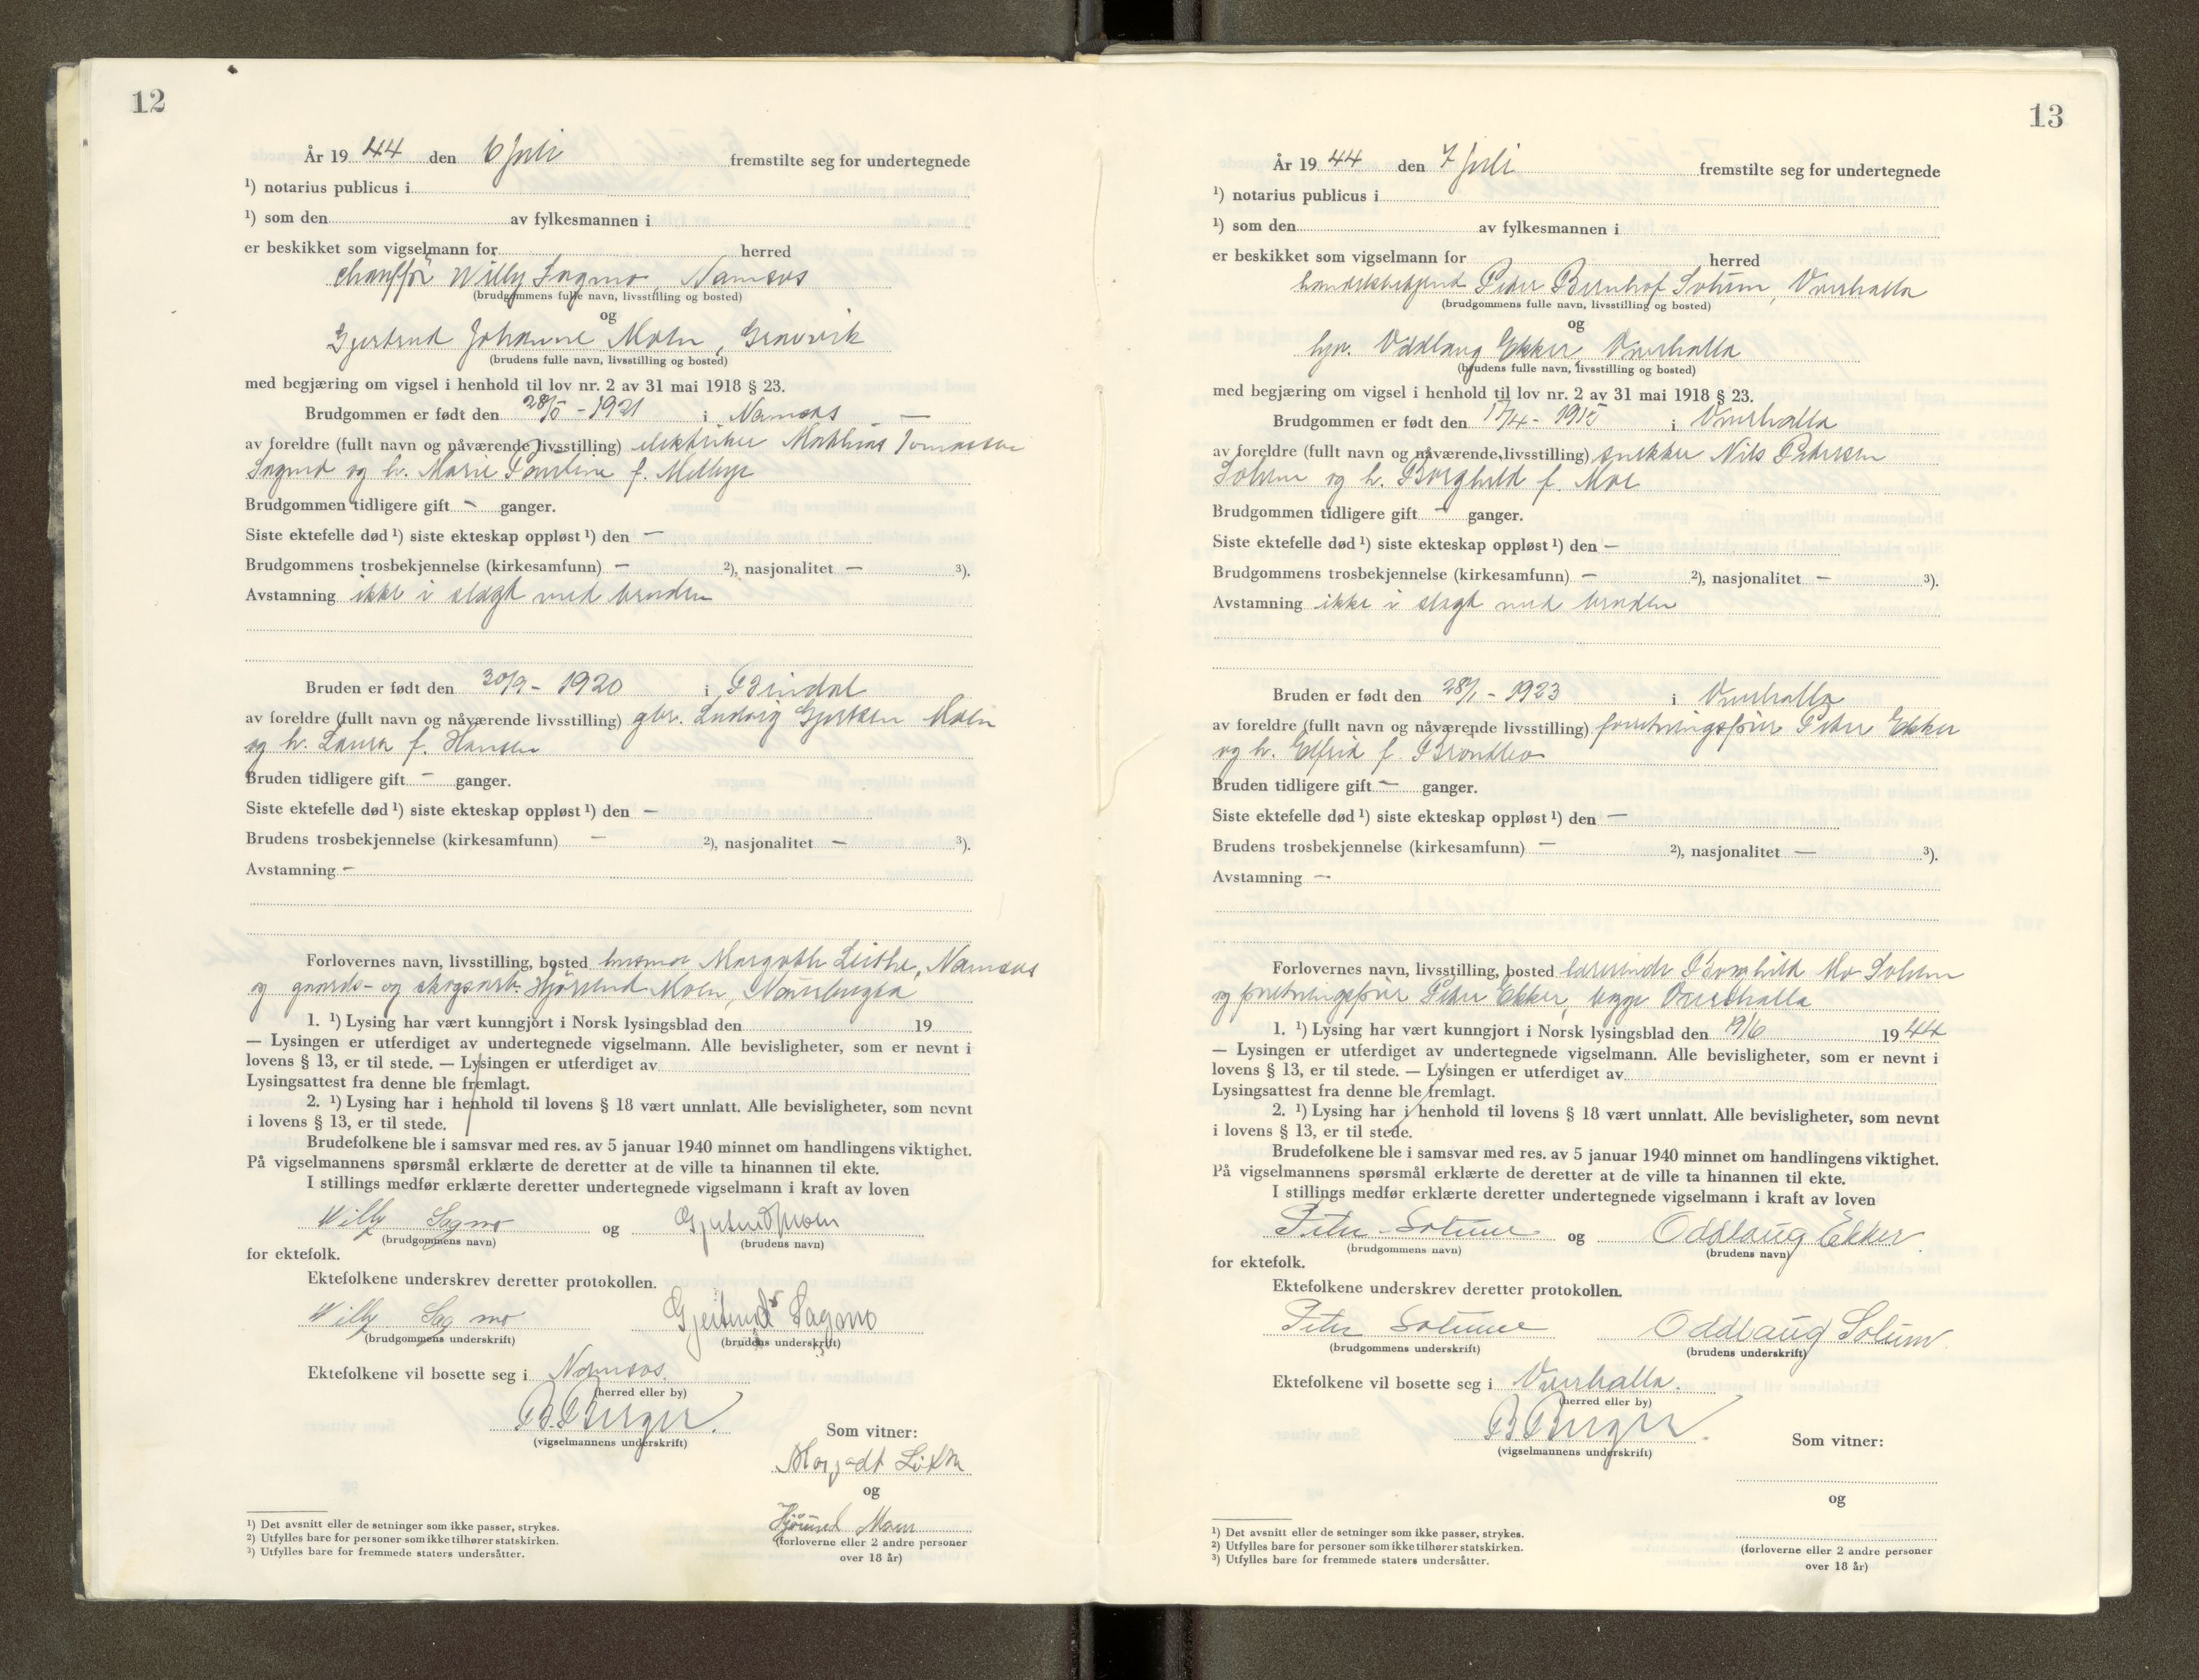 12
År 19 44 den 6 juli fremstilte seg for undertegnede
¹) notarius publicus i
¹) som den av fylkesmannen i
er beskikket som vigselmann for herred
chauffør Willy Sagmo, Namsos
(brudgommens fulle navn, livsstilling og bosted)
og
Gjertrud Johanne Moen, Gravvik
(brudens fulle navn, livsstilling og bosted)
med begjæring om vigsel i henhold til lov nr. 2 av 31 mai 1918 § 23.
Brudgommen er født den 28/5 - 1921 i Namsos —
av foreldre (fullt navn og nåværende livsstilling) elektriker Mathias Tomassen
Sagmo og h. Marie f.
Brudgommen tidligere gift — ganger.
Siste ektefelle død ¹) siste ekteskap oppløst ¹) den —
Brudgommens trosbekjennelse (kirkesamfunn) — ²), nasjonalitet — ³).
Avstamning ikke i slegt med bruden
Bruden er født den 30/9 - 1920 i Bindal
av foreldre (fullt navn og nåværende livsstilling) gbr. Ludvig Gjertsen Moen
og h. Laura f. Hansen
Bruden tidligere gift — ganger.
Siste ektefelle død ¹) siste ekteskap oppløst ¹) den —
Brudens trosbekjennelse (kirkesamfunn) — ²), nasjonalitet — ³).
Avstamning —
Forlovernes navn, livsstilling, bosted husmor Margoth Namsos
og gaards- og skogsarb. Hjørund Moen,
1. ¹) Lysing har vært kunngjort i Norsk lysingsblad den 19
— Lysingen er utferdiget av undertegnede vigselmann. Alle bevisligheter, som er nevnt i
lovens § 13, er til stede. — Lysingen er utferdiget av
Lysingsattest fra denne ble fremlagt.
2. ¹) Lysing har i henhold til lovens § 18 vært unnlatt. Alle bevisligheter, som nevnt
i lovens § 13, er til stede.
Brudefolkene ble i samsvar med res. av 5 januar 1940 minnet om handlingens viktighet.
På vigselmannens spørsmål erklærte de deretter at de ville ta hinannen til ekte.
I stillings medfør erklærte deretter undertegnede vigselmann i kraft av loven
Willy Sagmo og Gjertrud Moen
(brudgommens navn) (brudens navn)
for ektefolk.
Ektefolkene underskrev deretter protokollen.
Willy Sagmo Gjertrud Sagmo
(brudgommens underskrift) (brudens underskrift)
Ektefolkene vil bosette seg i Namsos.
(herred eller by)
B. Berger.
(vigselmannens underskrift)
Som vitner:
og
Hjørund Moen
(forloverne eller 2 andre personer
over 18 år)
¹) Det avsnitt eller de setninger som ikke passer, strykes.
²) Utfylles bare for personer som ikke tilhører statskirken.
³) Utfylles bare for fremmede staters undersåtter.
13
År 19 44 den 7 juli fremstilte seg for undertegnede
¹) notarius publicus i
¹) som den av fylkesmannen i
er beskikket som vigselmann for herred
Peter Bernhof Solum, Overhalla
(brudgommens fulle navn, livsstilling og bosted)
og
Oddlaug Ekker, Overhalla
(brudens fulle navn, livsstilling og bosted)
med begjæring om vigsel i henhold til lov nr. 2 av 31 mai 1918 § 23.
Brudgommen er født den 17/4 - 1915 i Overhalla
av foreldre (fullt navn og nåværende livsstilling) snekker Nils Petersen
Solum og h. Borghild f. Moe
Brudgommen tidligere gift — ganger.
Siste ektefelle død ¹) siste ekteskap oppløst ¹) den —
Brudgommens trosbekjennelse (kirkesamfunn) — ²), nasjonalitet — ³).
Avstamning ikke i slegt med bruden
Bruden er født den 28/1 - 1923 i Overhalla
av foreldre (fullt navn og nåværende livsstilling) forretningsfører Peter Ekker
og h. Elfrid f. Brondbo
Bruden tidligere gift — ganger.
Siste ektefelle død ¹) siste ekteskap oppløst ¹) den —
Brudens trosbekjennelse (kirkesamfunn) — ²), nasjonalitet — ³).
Avstamning —
Forlovernes navn, livsstilling, bosted lærerinde Borghild Mo Solum
og forretningsfører Peter Ekker, begge Overhalla
1. ¹) Lysing har vært kunngjort i Norsk lysingsblad den 19/6 19 44
— Lysingen er utferdiget av undertegnede vigselmann. Alle bevisligheter, som er nevnt i
lovens § 13, er til stede. — Lysingen er utferdiget av
Lysingsattest fra denne ble fremlagt.
2. ¹) Lysing har i henhold til lovens § 18 vært unnlatt. Alle bevisligheter, som nevnt
i lovens § 13, er til stede.
Brudefolkene ble i samsvar med res. av 5 januar 1940 minnet om handlingens viktighet.
På vigselmannens spørsmål erklærte de deretter at de ville ta hinannen til ekte.
I stillings medfør erklærte deretter undertegnede vigselmann i kraft av loven
Peter Solum og Oddlaug Ekker.
(brudgommens navn) (brudens navn)
for ektefolk.
Ektefolkene underskrev deretter protokollen.
Peter Solum Oddlaug Solum
(brudgommens underskrift) (brudens underskrift)
Ektefolkene vil bosette seg i Overhalla.
(herred eller by)
B Berger.
(vigselmannens underskrift)
Som vitner:
og
(forloverne eller 2 andre personer
over 18 år)
¹) Det avsnitt eller de setninger som ikke passer, strykes.
²) Utfylles bare for personer som ikke tilhører statskirken.
³) Utfylles bare for fremmede staters undersåtter.